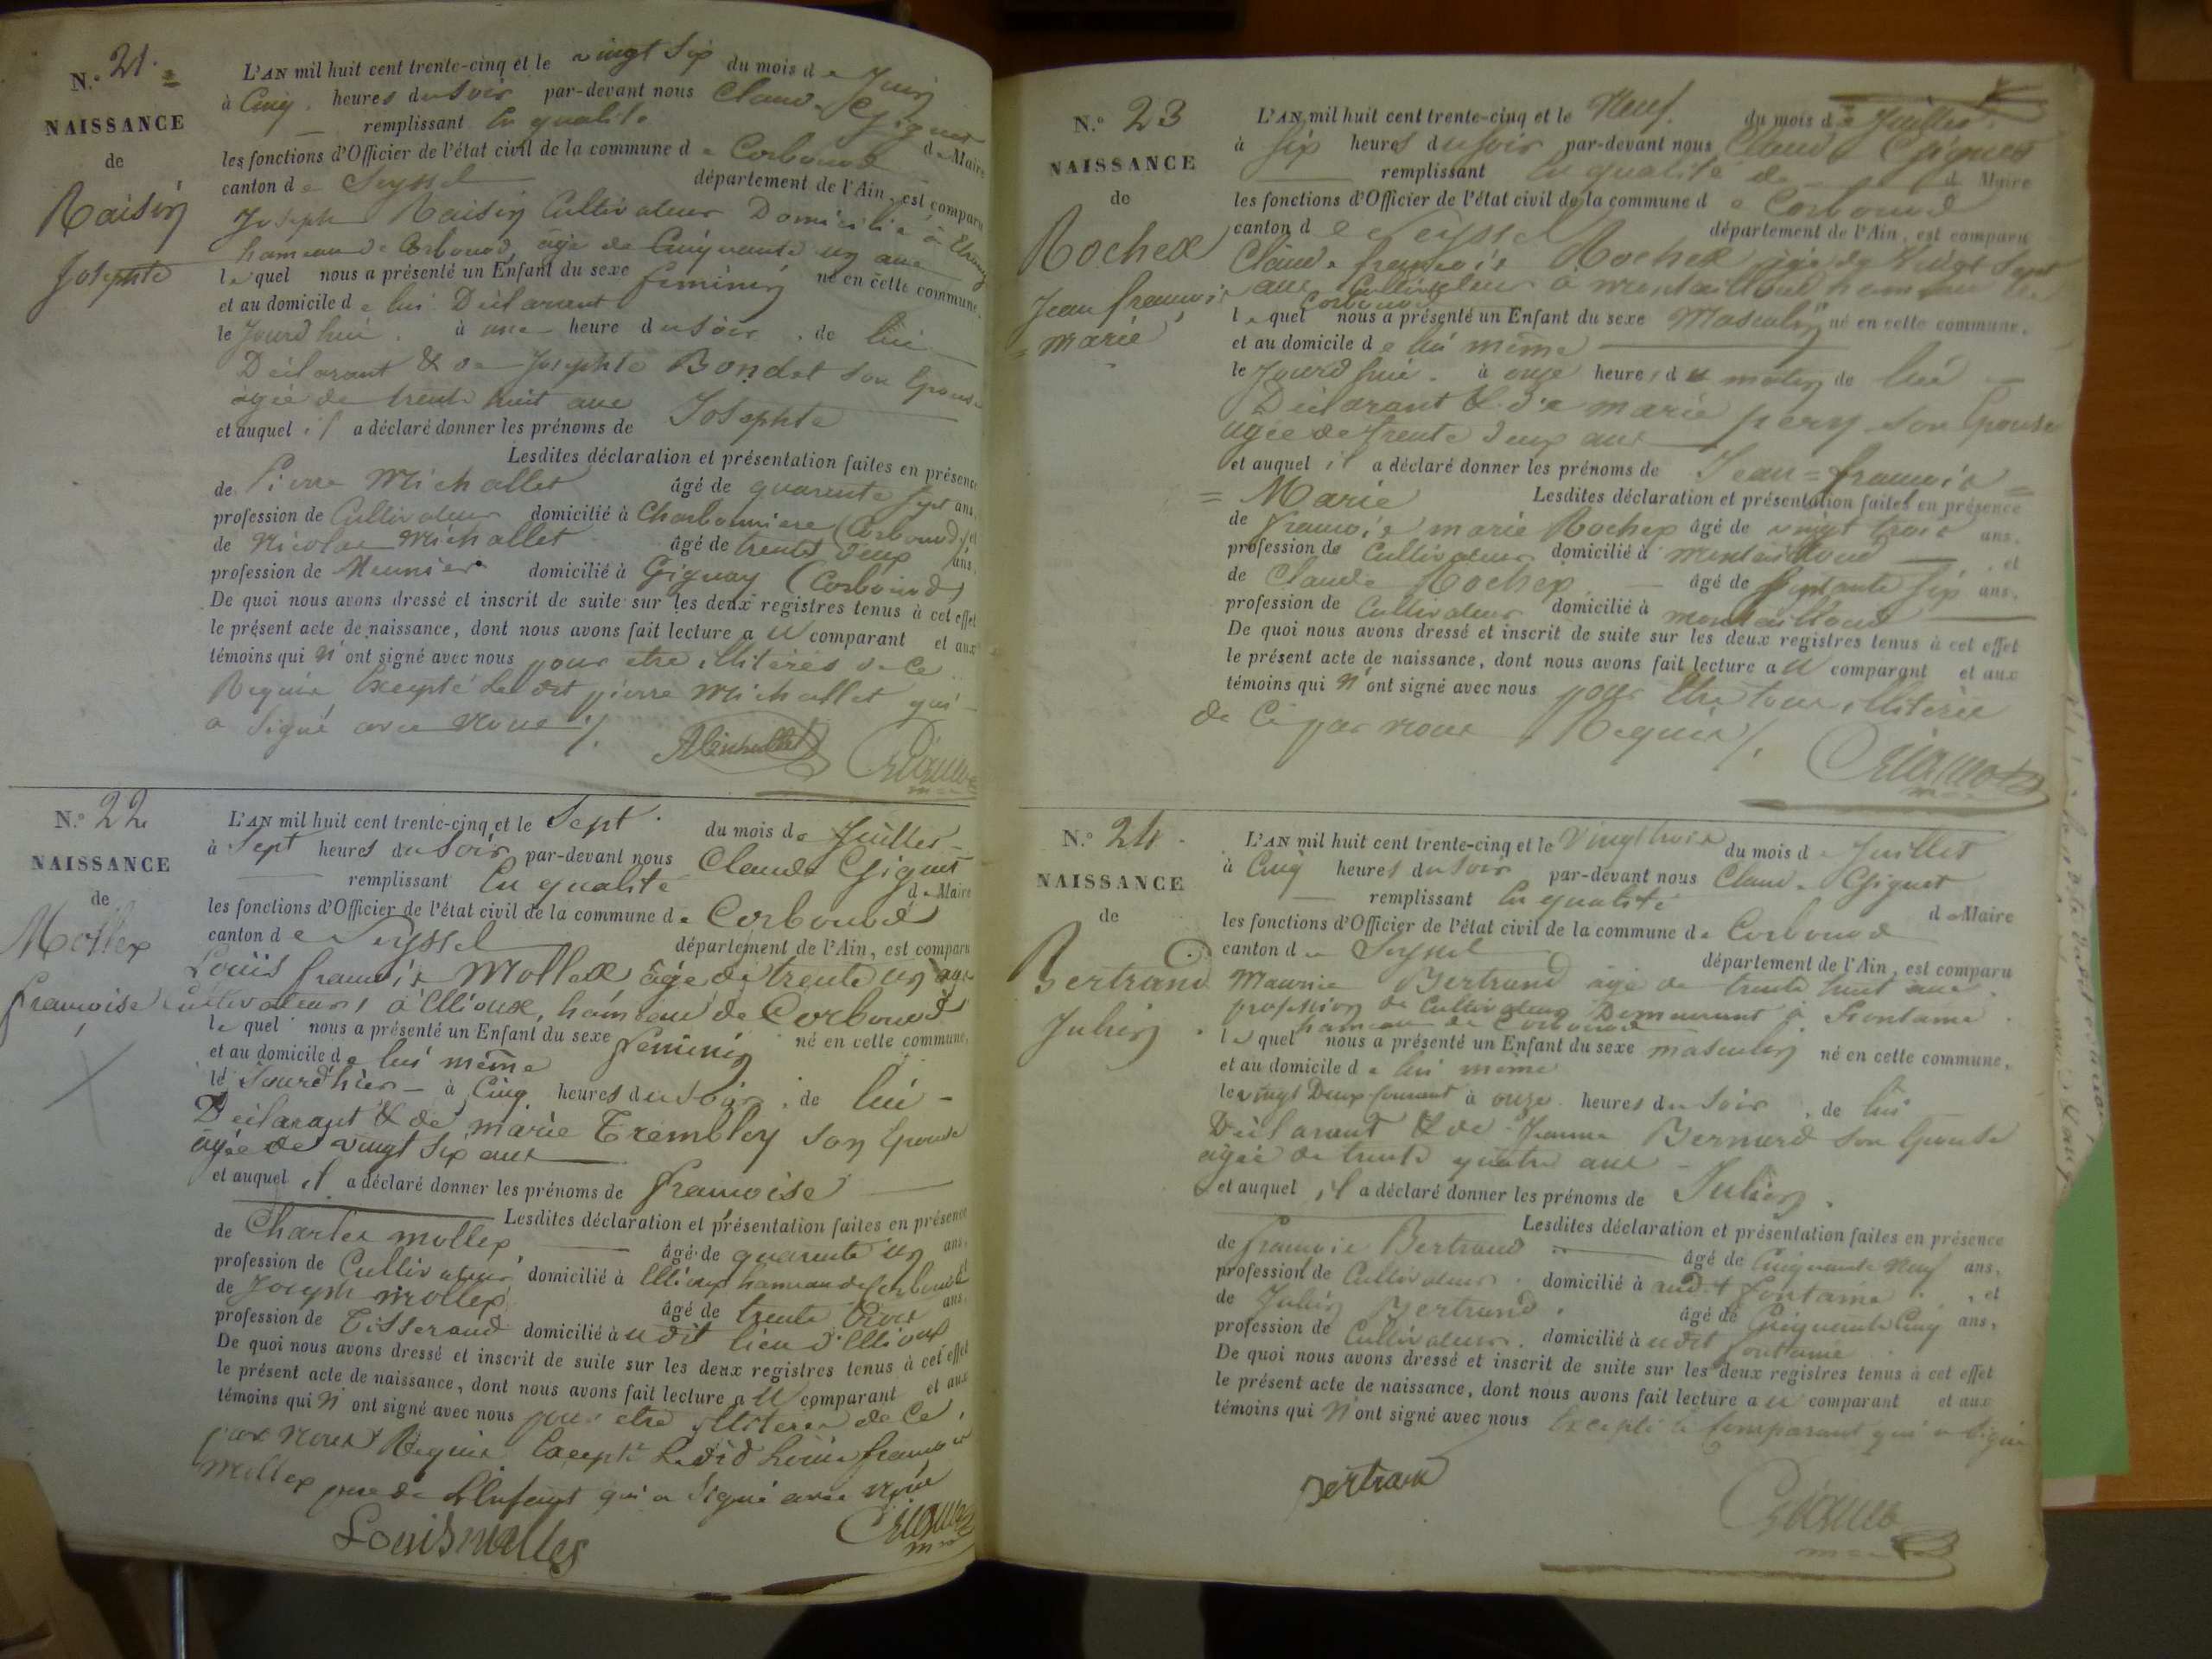 N.o 21.
NAISSANCE
de
Raisin
Josephte
L'AN mil huit cent trente-cinq et le vingt Six du mois de Juin
à Cinq heures du Soir par-devant nous Claude Gignet
remplissant En qualité de Maire
les fonctions d'Officier de l'état civil de la commune de Corbonod
canton de Seyssel département de l'Ain, est comparu
Joseph Raisin Cultivateur Domicilié à
hameau de Corbonod, âgé de Cinquante un ans
lequel nous a présenté un Enfant du sexe féminin né en cette commune,
et au domicile de lui Déclarant
le Jourd'hui à une heure du Soir, de lui
Déclarant & de Josephte Bondet son Epouse
âgée de trente huit ans
et auquel il a déclaré donner les prénoms de Josephte
Lesdites déclaration et présentation faites en présence
de Pierre Michallet âgé de quarente Sept ans,
profession de Cultivateur domicilié à Charbonniere (Corbonod) et
de Nicolas Michallet âgé de trente deux ans,
profession de Meunier domicilié à Gignay (Corbonod)
De quoi nous avons dressé et inscrit de suite sur les deux registres tenus à cet effet
le présent acte de naissance, dont nous avons fait lecture au comparant et aux
témoins qui n'ont signé avec nous pour etre illiterés de ce
Requis Excepté le dit pierre Michallet qui
a Signé avec Nous /.
Michallet
N.o 22
NAISSANCE
de
Mollex
francoise
L'AN mil huit cent trente-cinq et le Sept du mois de Juillet
à Sept heures du Soir par-devant nous Claude Gignet
remplissant En qualité de Maire
les fonctions d'Officier de l'état civil de la commune de Corbonod
canton de Seyssel département de l'Ain, est comparu
Louis francois Mollex âgé de trente un ans
Cultivateur, à Ellioux, hameau de Corbonod
lequel nous a présenté un Enfant du sexe feminin né en cette commune,
et au domicile de lui même
le Jourd'hier à Cinq heures du Soir, de lui
Déclarant & de marie Trembley son Epouse
âgée de vingt Six ans
et auquel il a déclaré donner les prénoms de francoise
Lesdites déclaration et présentation faites en présence
de Charles mollex âgé de quarente un ans,
profession de Cultivateur domicilié à Ellioux hameau de Corbonod et
de Joseph mollex âgé de trente trois ans
profession de Tisserand domicilié à udit lieu d'Ellioux
De quoi nous avons dressé et inscrit de suite sur les deux registres tenus à cet effet
le présent acte de naissance, dont nous avons fait lecture au comparant et aux
témoins qui n'ont signé avec nous pour etre illiterés de ce
par nous Requis Excepté Ledid Louis francois
mollex pere de L'Enfant qui a Signé avec nous
Louis mollex
N.o 23
NAISSANCE
de
Rochex
Jean francois
= marie
L'AN mil huit cent trente-cinq et le Neuf du mois de Juillet
à Six heures du Soir par-devant nous Claude Gignet
remplissant En qualité de de Maire
les fonctions d'Officier de l'état civil de la commune de Corbonod
canton de Seyssel département de l'Ain, est comparu
Claude francois Rochex âgé de Vingt Sept
ans Cultivateur à montailloud hameau de
Corbonod
lequel nous a présenté un Enfant du sexe Masculin né en cette commune,
et au domicile de lui même
le Jourd'hui à onze heures du matin de lui
Déclarant & de marie pery son Epouse
âgée de trente deux ans
et auquel il a déclaré donner les prénoms de Jean=francois=
= Marie Lesdites déclaration et présentation faites en présence
de francois marie Rochex âgé de vingt trois ans,
profession de Cultivateur domicilié à montailloud et
de Claude Rochex âgé de Septante Six ans,
profession de Cultivateur domicilié à montailloud
De quoi nous avons dressé et inscrit de suite sur les deux registres tenus à cet effet
le présent acte de naissance, dont nous avons fait lecture au comparant et aux
témoins qui n'ont signé avec nous pour Etre tous illiterés
de Ce par nous Requis /.
N.o 24
NAISSANCE
de
Bertrand
Julien
L'AN mil huit cent trente-cinq et le Vingt trois du mois de Juillet
à Cinq heures du Soir par-devant nous Claude Gignet
remplissant En qualité de Maire
les fonctions d'Officier de l'état civil de la commune de Corbonod
canton de Seyssel département de l'Ain, est comparu
Maurice Bertrand âgé de trente huit ans
profession de Cultivateur Demeurant à Fontaine
hameau de Corbonod
lequel nous a présenté un Enfant du sexe masculin né en cette commune,
et au domicile de lui même
le vingt Deux Courant à onze heures du Soir, de lui
Déclarant & de Jeanne Bernard son Epouse
âgée de trente quatre ans
et auquel il a déclaré donner les prénoms de Julien
Lesdites déclaration et présentation faites en présence
de francois Bertrand âgé de Cinquante Neuf ans,
profession de Cultivateur domicilié à audit fontaine, et
de Julien Bertrand âgé de Cinquante Cinq ans,
profession de Cultivateur domicilié à udit fontaine
De quoi nous avons dressé et inscrit de suite sur les deux registres tenus à cet effet
le présent acte de naissance, dont nous avons fait lecture au comparant et aux
témoins qui n'ont signé avec nous Excepté le Comparant qui a Signé
Bertrand